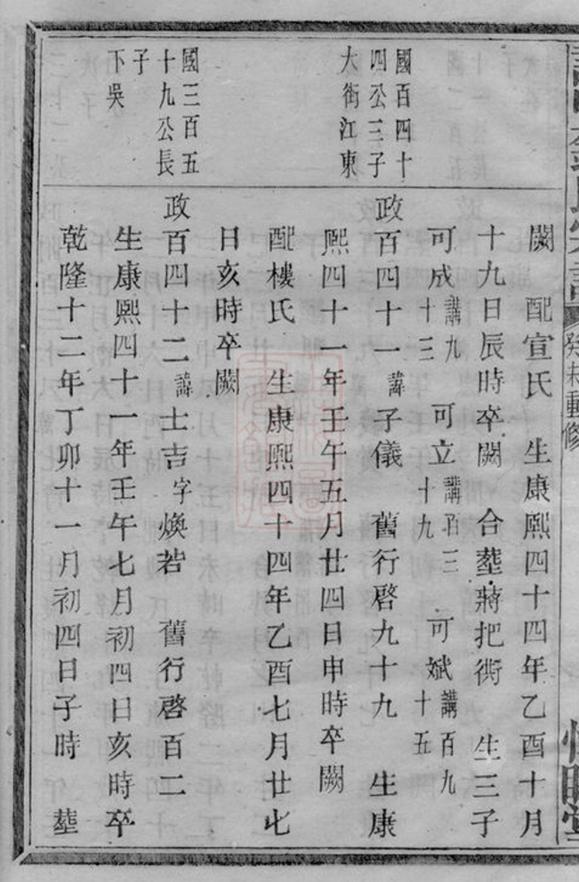 癸未重修
闕 配宣氏 生康熙四十四年乙酉十月
十九日辰時卒闕 合塟蔣把衖 生三子
可成講九十三 可立講百三十九 可斌講百九十五
國百四十四公三子大衖江東
政百四十一諱子儀 舊行啓九十九 生康
熙四十一年壬午五月廿四日申時卒闕
配樓氏 生康熙四十四年乙酉七月廿七
日亥時卒闕
國三百五十九公長子下吳
政百四十二諱士吉字煥若 舊行啓百二
生康熙四十一年壬午七月初四日亥時卒
乾隆十二年丁卯十一月初四日子時 塟